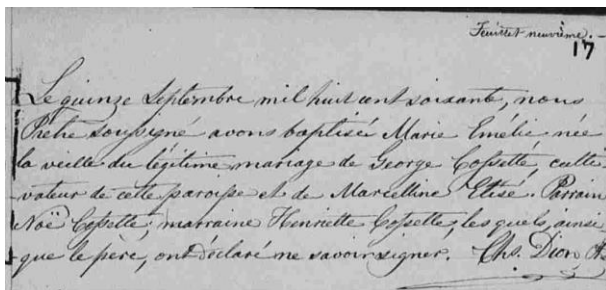 Feuillet neuvième. -
17
Le quinze Septembre mil huit cent soixante, nous
Prêtre soussigné avons baptisé Marie Emélie née
la vieille du légitime mariage de George Cossette, culti
-vateur de cette paroisse et de Marcelline Etisé. Parrain
Noë Cossette, marraine Henriette Cossette, les quels, ainsi
que le père, ont déclaré ne savoir signer. Chs. Dion